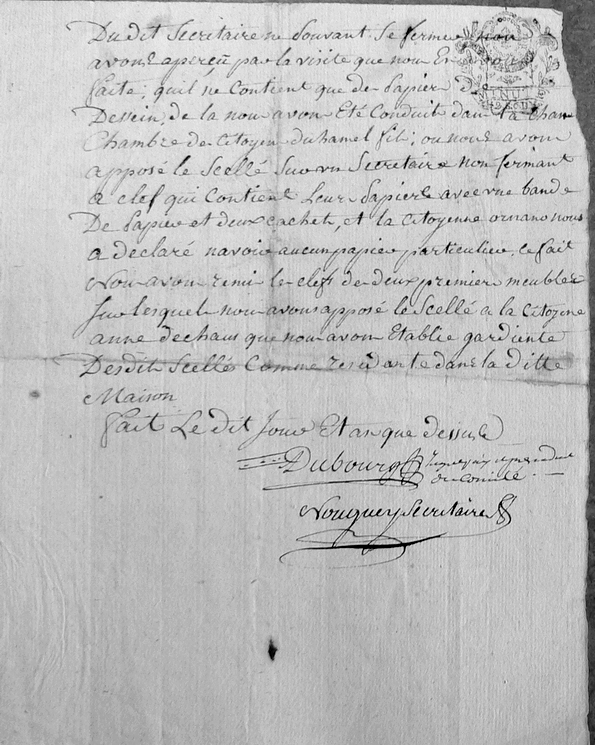 Du dit Secritaire ne Souvant Se fermer nou
avons aperçu par la visite que nous En
faite, quil ne Contient que des Papier d
Dessein, de la nous avons Eté Conduit dans la Cham
Chambre de Citoyen duhamel fils, ou nous avons
apposé le Scellé Sur un Secretaire non fermant
a clef qui Contient Leurs Papiers avec une bande
De Papier et deux cachet, et la Citoyenne ornano nous
a déclaré n'avoir aucun papier particulier, ce fait
Nous avons remi les clefs de deux premier meubles
Sur lesquel nous avons apposé le Scellé a la Citoyene
anne dechaus que nous avons Etablie gardienne
Desdits Scellés Comme residante dans la ditte
Maison
fait Le dit Jour Et an que dessus
Dubourg
du Comité
Nouguey Secritaire